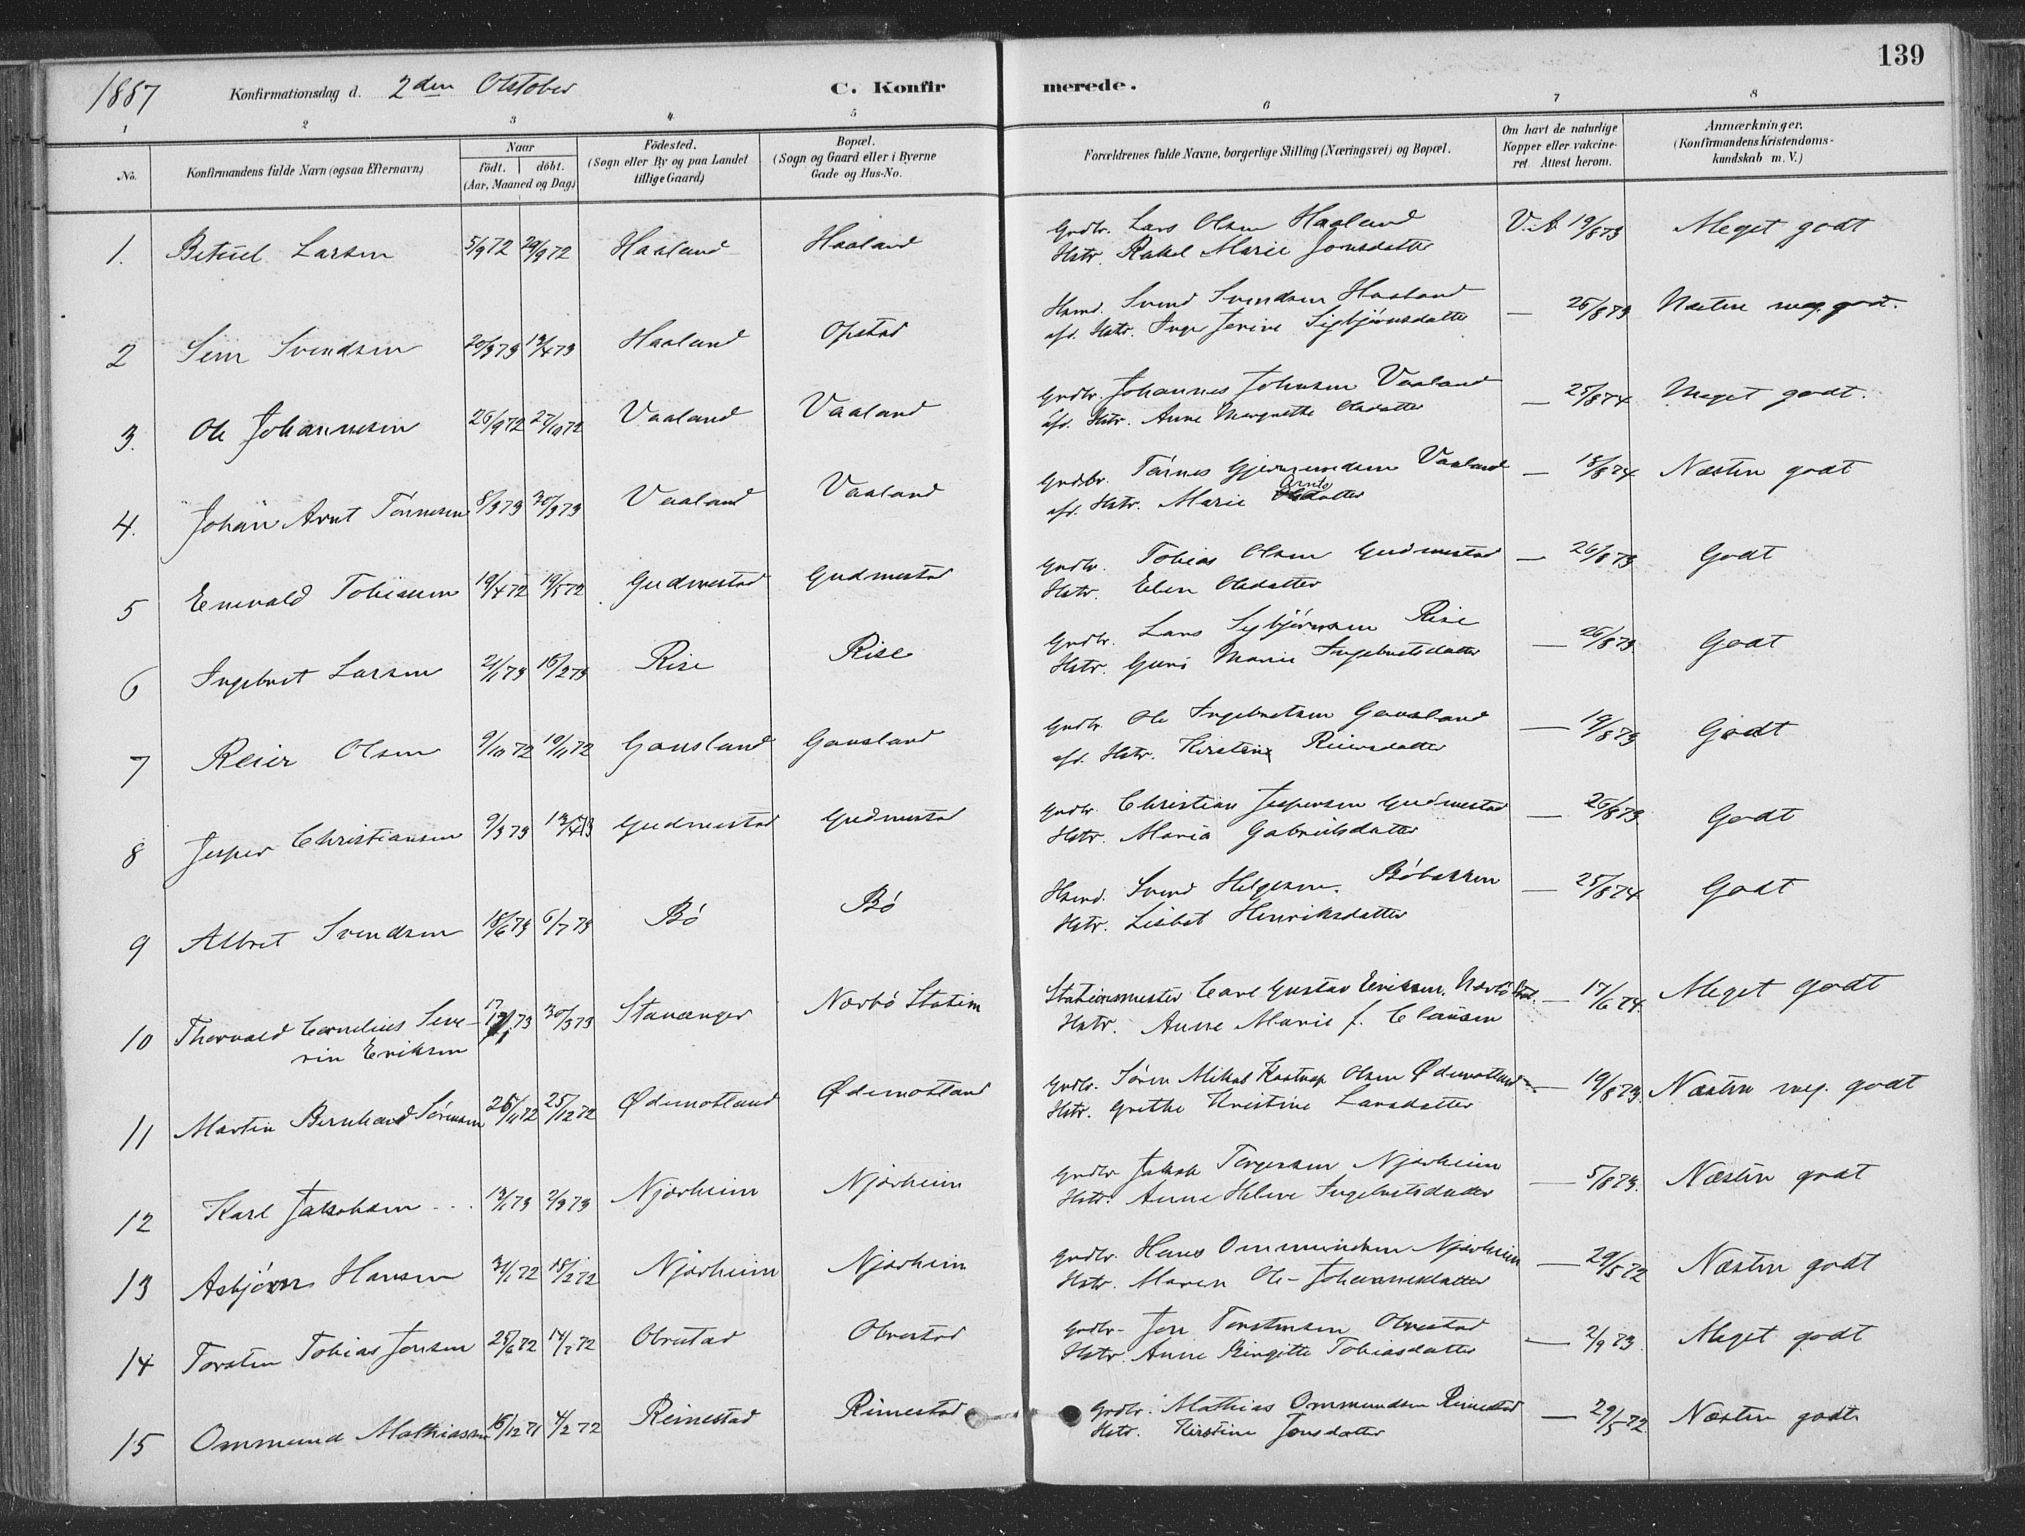 139
1887 Konfirmationsdag d. 2den Oktober C. Konfirmerede.
1 2 3 4 5 6 7 8
No. Konfirmandens fulde Navn (ogsaa Efternavn)
Naar født. døbt. (Aar, Maaned og Dag)
Fødested. (Sogn eller By og paa Landet tillige Gaard)
Bopæl. (Sogn og Gaard eller i Byerne Gade og Hus-No.
Forældrenes fulde Navne, borgerlige Stilling (Næringsvei) og Bopæl.
Om havt de naturlige Kopper eller vakcineret. Attest herom.
Anmærkninger. (Konfirmandens Kristendomskundskab m. V.)
1. Betuel Larsen 5/9 72 29/9 72 Haaland Haaland Grdbr. Lars Olsen Haaland V.A 19/8 73 Meget godt
Hstr. Rakel Marie Jonsdatter
2 Sem Svendsen 20/3 73 13/4 73 Haaland Opstad Hsmd. Svend Svendsen Haaland — 26/8 73 Næsten meg. godt.
afd. Hstr. Inger Serine Sigbjørnsdatter
3. Ole Johannesen 26/9 72 27/10 72 Vaaland Vaaland Grdbr. Johannes Johnsen Vaaland — 25/8 74 Meget godt.
afd. Hstr. Anne Margrethe Olsdatter
4. Johan Arnt Tønnesen 8/3 73 30/3 73 Vaaland Vaaland Grdbr. Tønnes Vaaland — 18/8 74 Næsten godt
afd. Hstr. Marie Arntsdatter
5 Enevald Tobiassen 19/4 72 19/5 72 Gudmestad Gudmestad Grdbr. Tobias Olsen Gudmestad — 26/8 73 Godt
Hstr. Elen Olsdatter
6 Ingebret Larsen 21/1 73 16/2 73 Rise Rise Grdbr. Lars Sigbjørnsen Rise — 26/8 73 Godt
Hstr. Guri Marie Ingebretsdatter
7 Reier Olsen 9/10 72 10/11 72 Gausland Gausland Grdbr. Ole Ingebretsen Gausland — 19/8 73 Godt
afd. Hstr. Kirstine Reiersdatter
8 Jesper Christiansen 9/3 73 13/4 73 Gudmestad Gudmestad Grdbr. Christian Jespersen Gudmestad — 26/8 73 Godt
Hstr. Maria Gabrielsdatter
9 Albret Svendsen 18/6 73 6/7 73 Bø Bø Hsmd. Svend Helgesen. Bøbakken — 25/8 74 Godt
Hstr. Lisbet Henriksdatter
10 Thorvald Cornelius Seve- 17/1 73 30/3 73 Stavanger Nærbø Station Stationsmester Carl Gustav Eriksen. Nærbø Stat. — 17/6 74. Meget godt
rin Eriksen Hstr. Anne Marie f. Clausen
11 Martin Bernhard Sørensen 26/11 72 25/12 72 Ødemotland Ødemotland Grdbr. Søren Mikal Kastrup Olsen Ødemotland — 19/8 73. Næsten meg. godt
Hstr. Grethe Kristine Larsdatter
12 Karl Jakobsen 13/1 73 2/3 73 Njærheim Njærheim Grdbr Jakob Torgersen Njærheim — 5/8 73. Næsten godt
Hstr. Anne Helene Ingebretsdatter
13 Asbjørn Hansen 31/1 72 18/2 72 Njærheim Njærheim Grdbr. Hans Ommundsen Njærheim — 29/5 72 Næsten godt
Hstr. Maren Ole-Johannesdatter
14 Torsten Tobias Jonsen 23/6 72 14/7 72 Obrestad Obrestad Grdbr- Jon Torstensen Obrestad — 2/9 73. Meget godt
Hstr. Anne Birgitte Tobiasdatter
15 Ommund Mathiassen 15/12 71 4/2 72 Reimestad Rimestad Grdbr. Mathias Ommundsen Rimestad — 29/5 72 Næsten godt
Hstr. Kirstine Jonsdatter